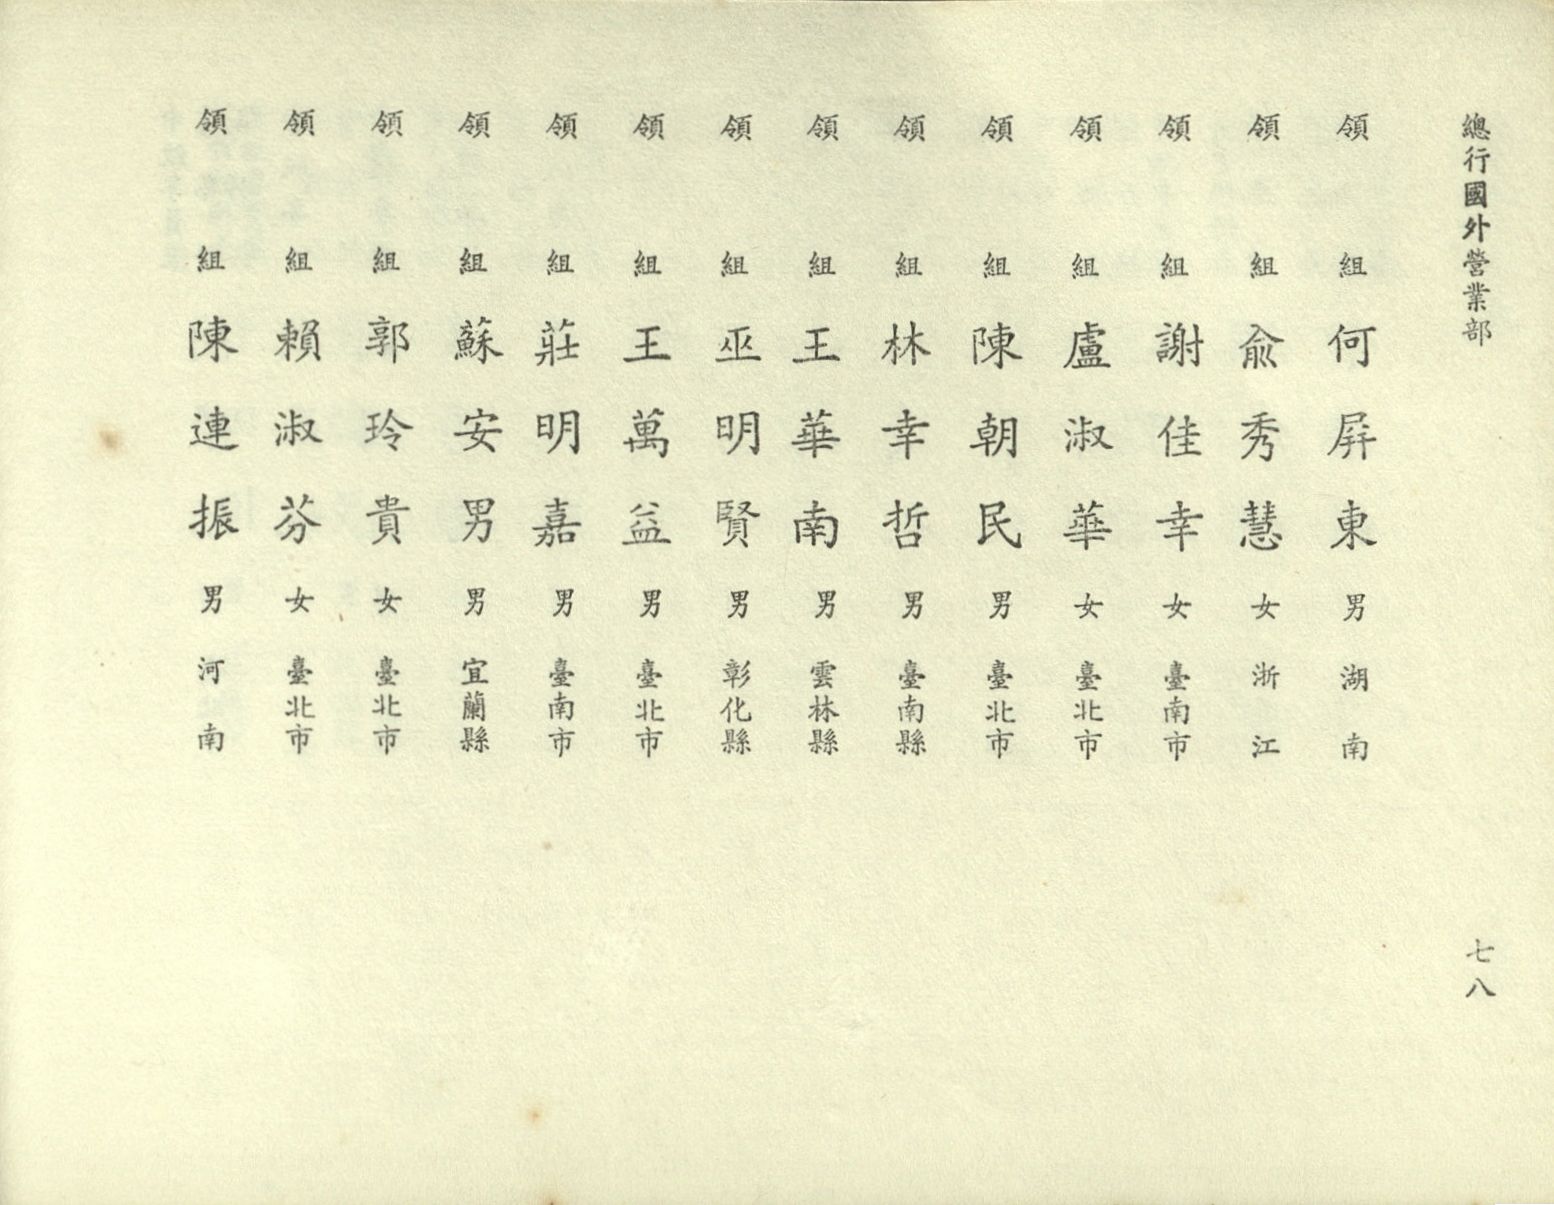 總行國外營業部
七八
領組何屏東男湖南
領組俞秀慧女浙江
領組謝佳幸女臺南市
領組盧淑華女臺北市
領組陳朝民男臺北市
領組林幸哲男臺南縣
領組王華南男雲林縣
領組巫明賢男彰化縣
領組王萬益男臺北市
領組莊明嘉男臺南市
領組蘇安男男宜蘭縣
領組郭玲貴女臺北市
領組賴淑芬女臺北市
領組陳連振男河南